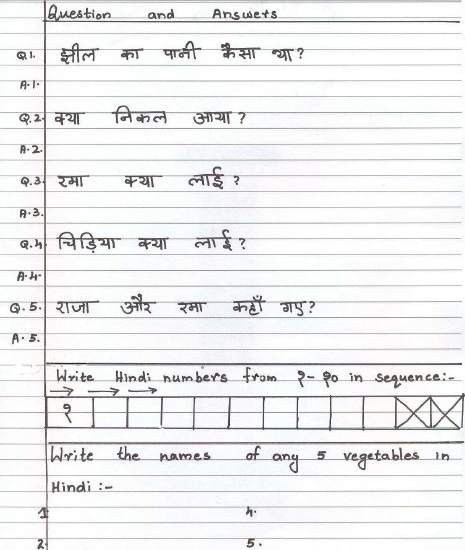 Question and Answers
Q1. झील का पानी कैसा था?
A.1.
Q.2. क्या निकल आया?
A.2.
Q.3. रमा क्या लाई?
A.3.
Q.4 चिड़िया क्या लाई?
A.4.
Q.5. राजा और रमा कहाँ गए?
A.5.
Write Hindi numbers from १-१० in sequence:-
१
Write the names of any 5 vegetables in
Hindi :-
1. 4.
2. 5.